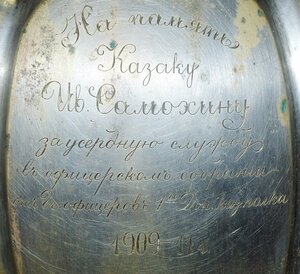 На память
Казаку
Ив. Самохину
за усердную службу
въ офицерскомъ собрании
офицеровъ 1го Дон. полка
1909-11 г.